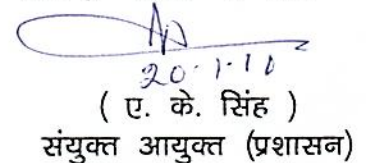 20-1-11
( ए. के. सिंह )
संयुक्त आयुक्त (प्रशासन)